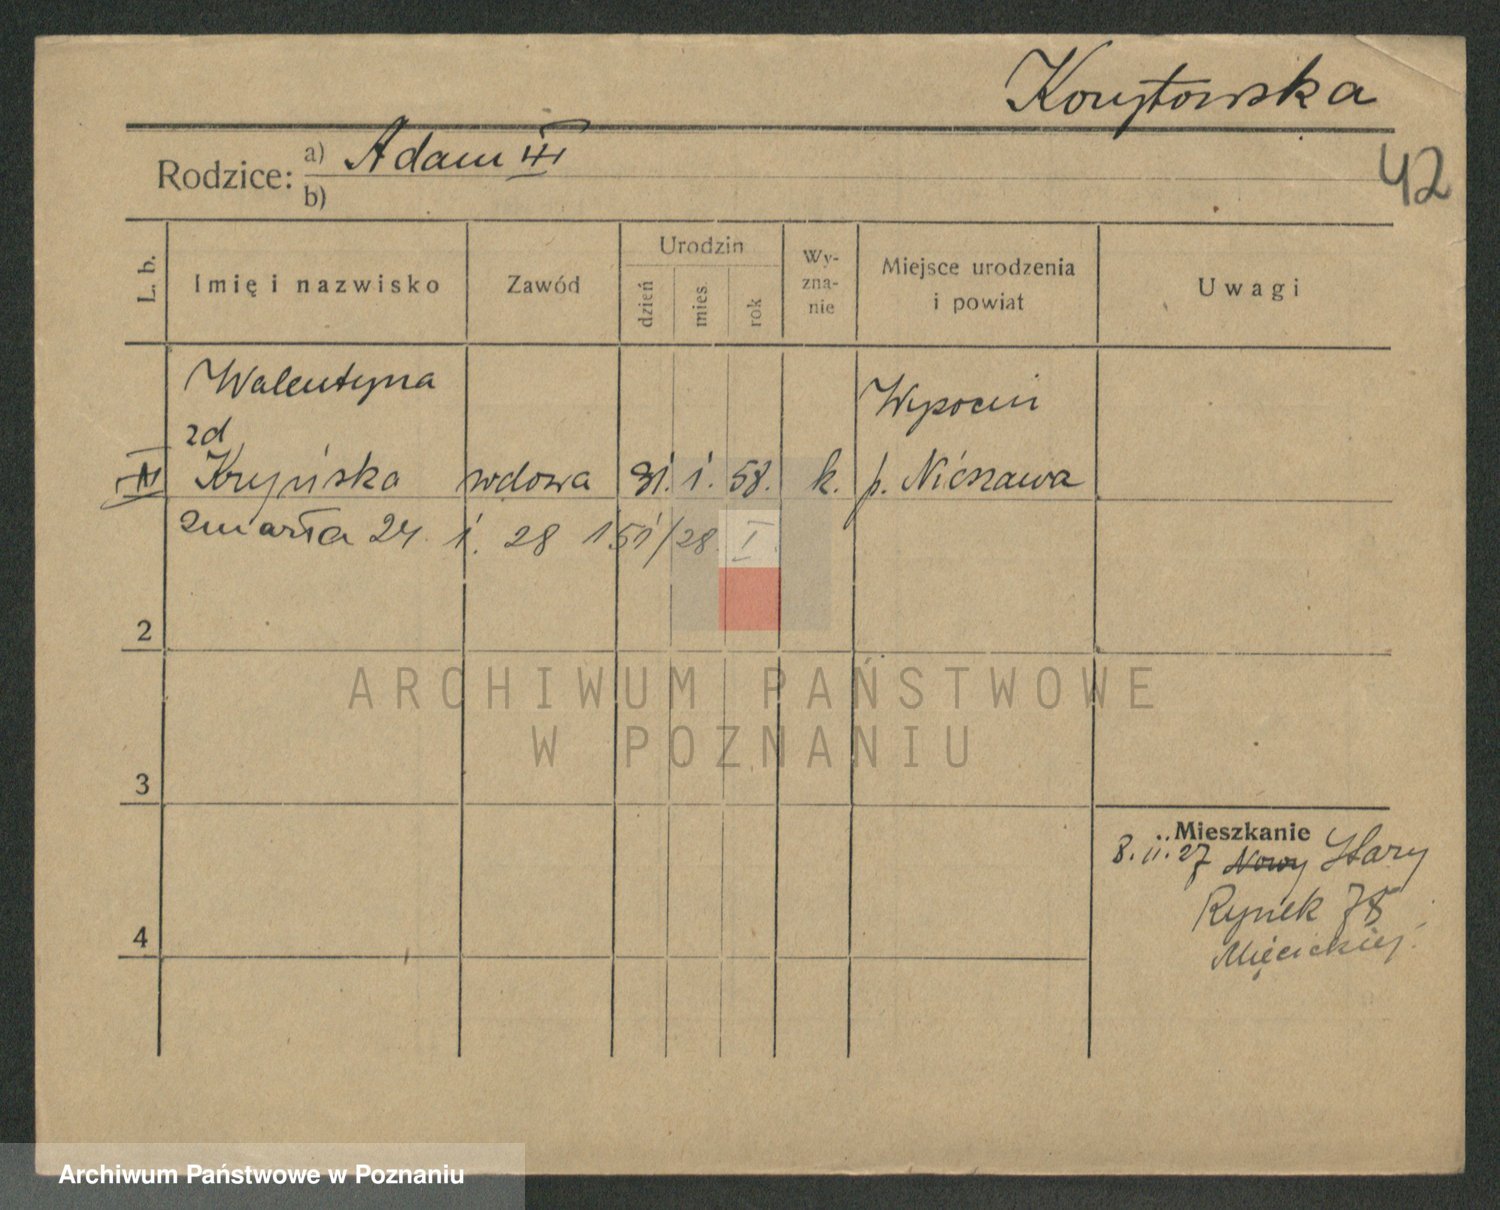 Korytowska
42
Rodzice: a) Adam III
b)
L. b. Imię i nazwisko Zawód Urodzin dzień mies. rok Wy-zna-nie Miejsce urodzenia i powiat Uwagi
Walentyna Wysocin
zd
Kryńska wdowa 31. 1. 58. k. p. Nieszawa
zmarła 24. 1. 28 151/28 I.
2
ARCHIWUM PAŃSTWOWE
W POZNANIU
3
Mieszkanie
8. II. 27 Nowy Stary
Rynek 78
Mięcickiej.
4
Archiwum Państwowe w Poznaniu